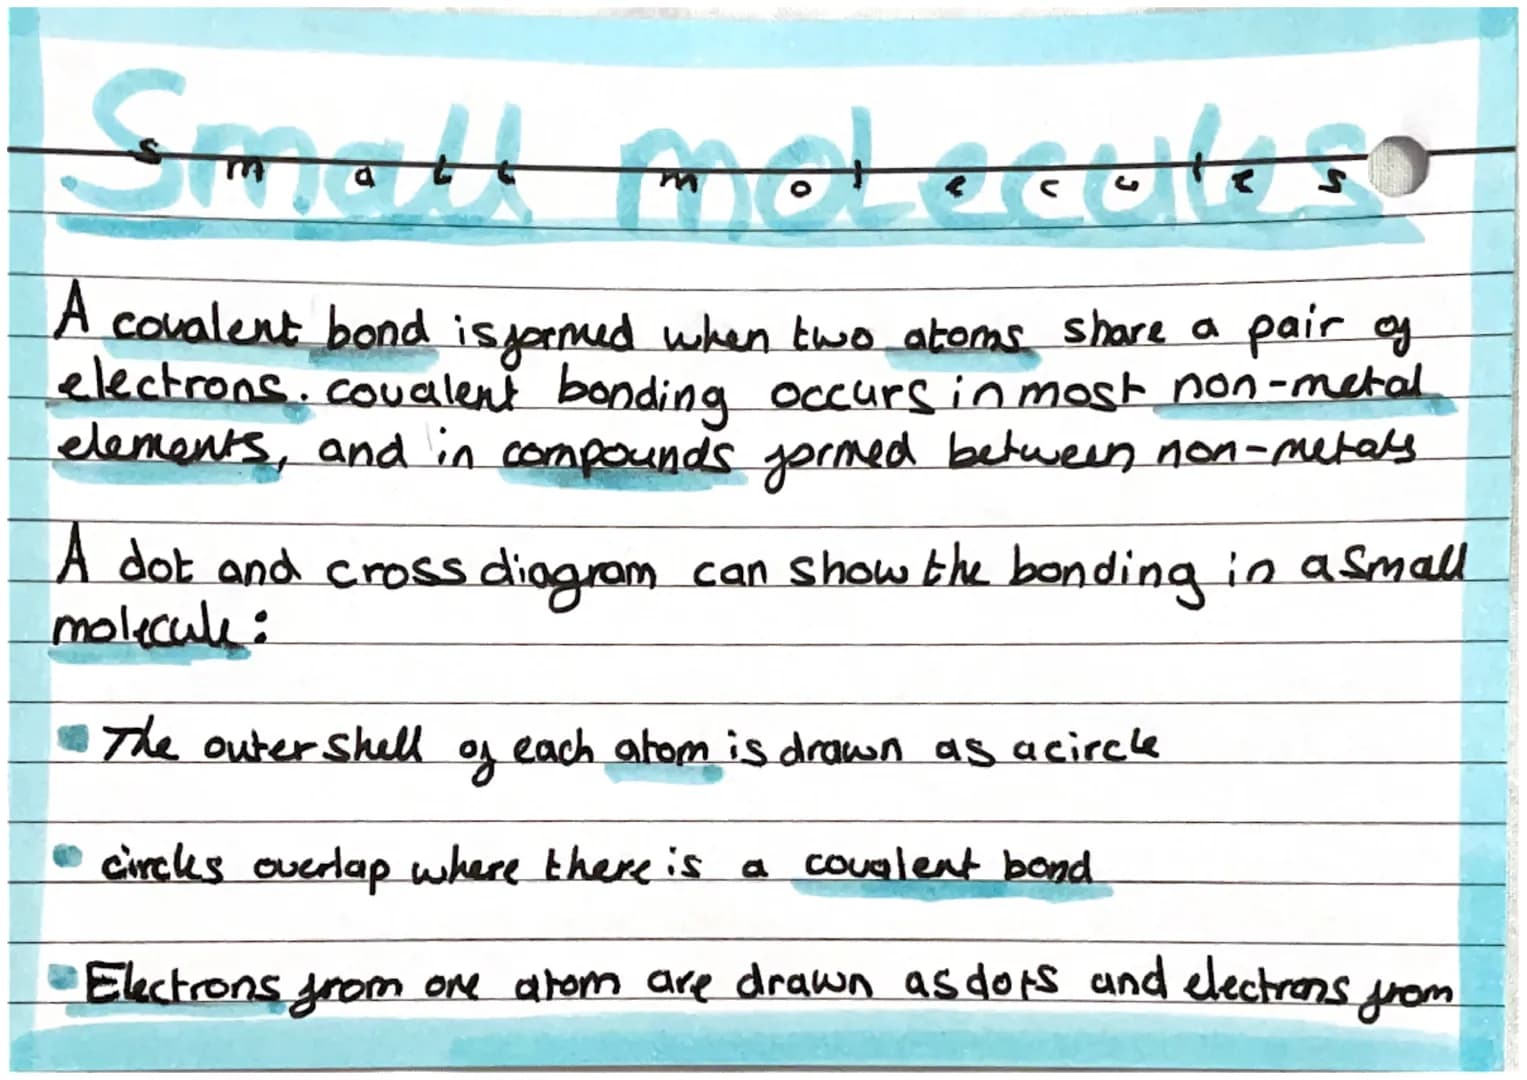 Small molecules
small molecules
A covalent bond is formed when two atoms share a pair of
electrons. covalent bonding occurs in most non-metal
elements, and in compounds formed between non-metals
A dot and cross diagram can show the bonding in a small
molecule:
The outer shell of each atom is drawn as a circle
circles overlap where there is a covalent bond
Electrons from one atom are drawn as dots and electrons from